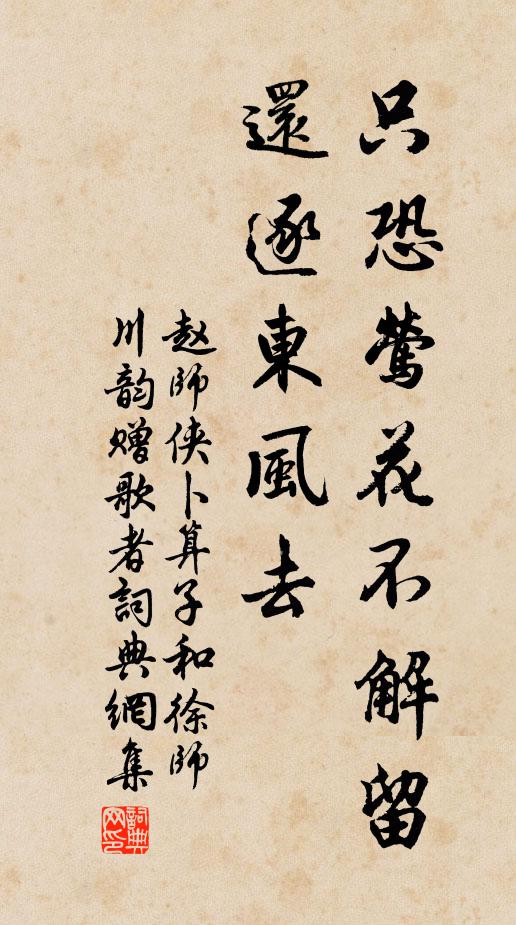 只恐鶯花不解留
還逐東風去
赵師俠卜算子和徐師
川韵赠歌者詞典網集
詞典
网印